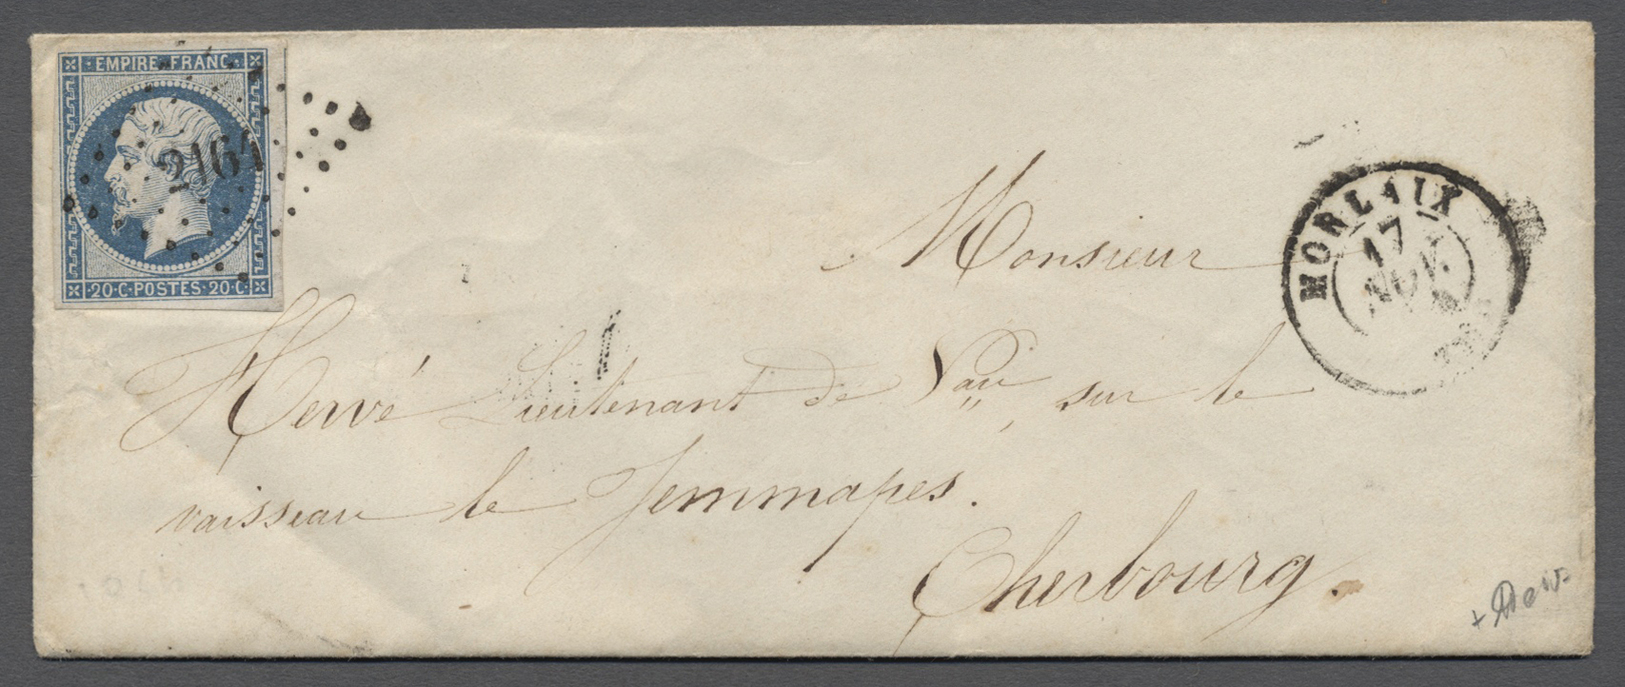 EMPIRE FRANC.
2164
20·C·POSTES·20·C·
MORLAIX
17
Monsieur
Hervé Lieutenant de Vau, sur le
vaisseau le Jemmapes.
Cherbourg.